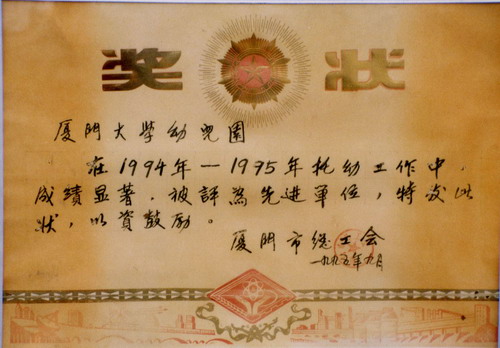 奖状
厦门大學幼兒園
在1994年—1995年托幼工作中，
成績显著，被評為先进單位，特发此
状，以资鼓励。
厦門市總工会
一九九五年九月